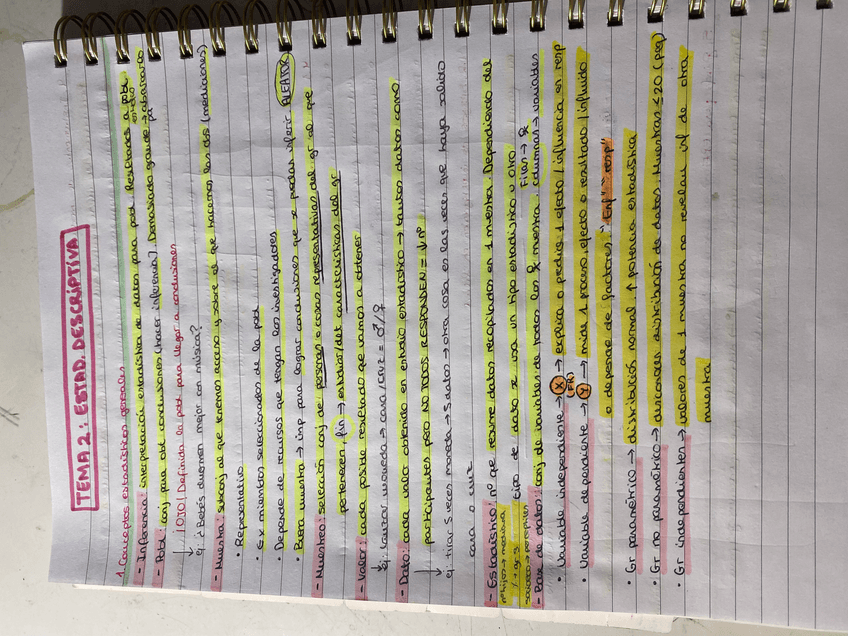 TEMA 2: ESTAD. DESCRIPTIVA
1. Conceptos estadísticos generales
- Inferencia: interpretación estadística de datos para pobl. Resultados a pobl.
- Pobl: conj para obt conclusiones (hacer inferencia). Demasiado grande → abarcarlo
↓ ¡OJO! Definir la pobl para llegar a conclusiones
ej: ¿Bebés duermen mejor con música?
- Muestra: subconj al que tenemos acceso y sobre el que hacemos las dos (mediciones)
• Representativo
• Ex miembros seleccionados de la pobl
• Depende de recursos que tengan los investigadores
• Buena muestra → imp para lograr conclusiones que se puedan inferir ALEATOR
- Muestreo: selección conj de personas o cosas representativas del gr al que
pertenecen, fin → estudiar/det características del gr
- Valor: cada posible resultado que vamos a obtener
↓ ej: lanzar moneda → cara/cruz = ♂/♀
- Dato: cada valor obtenido en estudio estadístico → tantos datos como
participantes pero NO TODOS RESPONDEN = ↓ nº
↓ ej: tirar 5 veces moneda → 5 datos → otra cosa es las veces que haya salido
cara o cruz
- Estadístico: nº que resume datos recopilados en 1 muestra. Dependiendo del
tipo de dato se usa un tipo estadístico u otro
- Base de datos: conj de variables de todos los muestra
Filas →
columnas → variables
• Variable independiente → X (FR) → explica o predice 1 efecto / influencia en resp
• Variable dependiente → Y → mide 1 proceso, efecto o resultado / influido
o depende de factores. "Enfª - resp"
• Gr paramétrico → distribución normal ↑ potencia estadística
• Gr no paramétrico → desconoces distribución de datos. Muestras ≤ 20 (peq)
• Gr independientes → valores de 1 muestra no revelan inf de otra
muestra